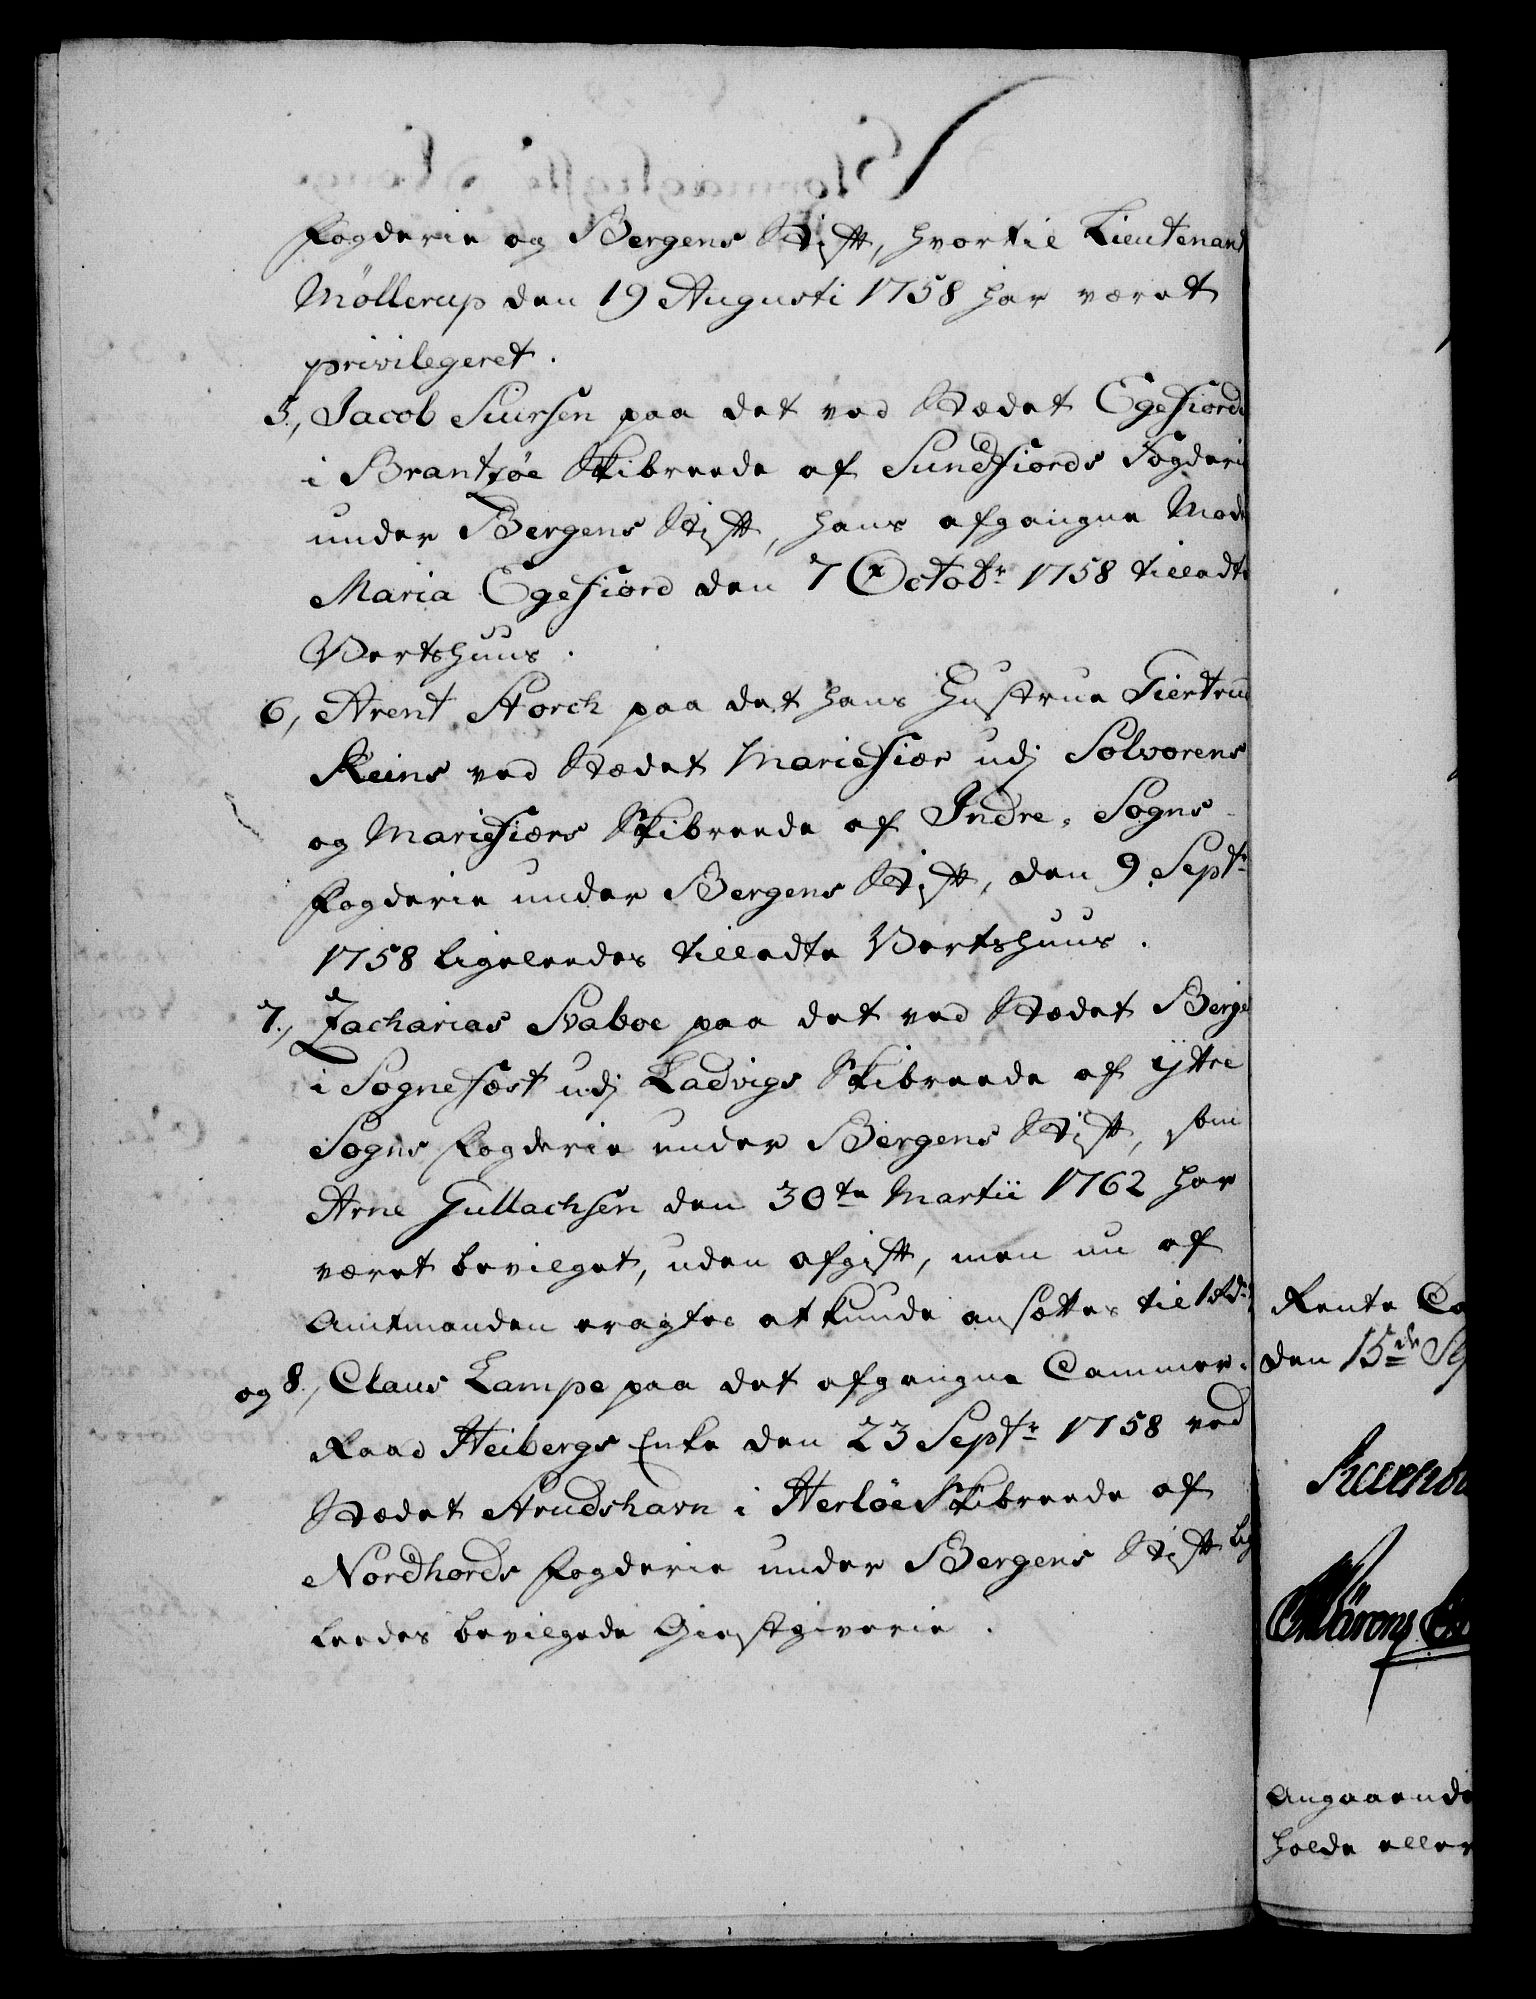 Fogderie og Bergens Stift, hvortil Lieutenant
Möllerup den 19 Augusti 1758 har været
privilegeret.
5., Jacob Siursen paa det ved Stædet Egefiord
i Brantzöe Skibreede af Sundfiords Fogderie
under Bergens Stift, hans afgangne Moder
Maria Egefiord den 7 Octobr 1758 tilladte
Vertshuus.
6, Arent Storch paa det hans Hustrue Giertrud
Reins ved Stædet Mariefiær udj Solvorens
og Mariefiærs Skibreede af Indre-Sogns-
Fogderie under Bergens Stift, den 9 Septr
1758 ligeledes tilladte Vertshuus.
7., Zacharias Svaboe paa det ved Stædet Berge
i Sognefæst udj Ladvigs Skibreede af ÿttre
Sogns Fogderie under Bergens Stift, som
Arne Gullachsen den 30te Martii 1762 har
været bevilget, uden afgift, men nu af
Amtmanden eragtes at kunde ansættes til 1 Rdr
og 8., Claus Lampe paa det afgangne Cammer-
Raad Heibergs Enke den 23 Septr 1758 ved
Stædet Strudshavn i Herlöe Skibreede af
Nordhords Fogderie under Bergens Stift lige
leedes bevilgede Giestgiverie.
Rente Ca
den 15de Se
Angaaende
holde eller